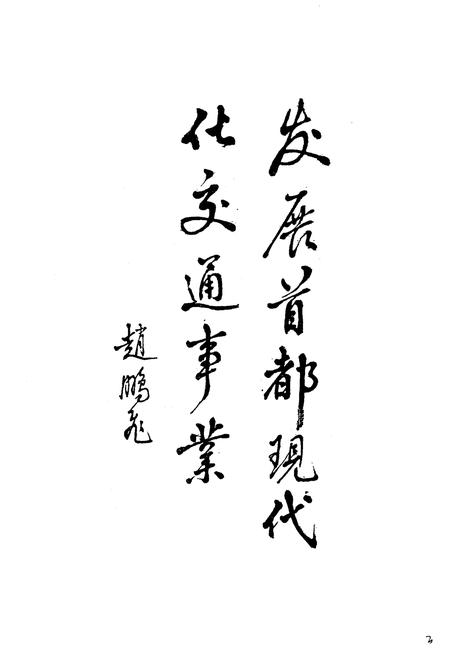 发展首都現代
化交通事業
趙鵬飛